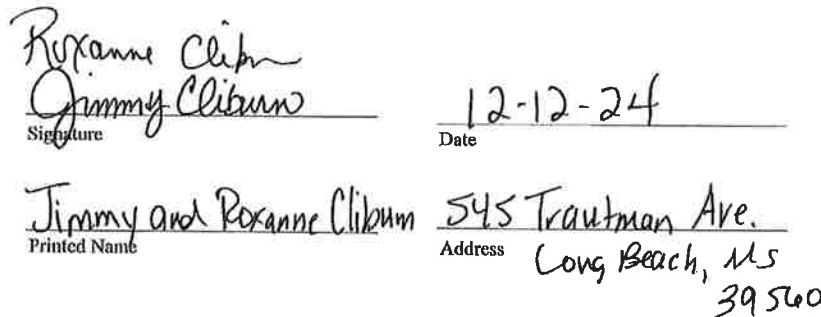 Roxanne Cliburn
Jimmy Cliburn
Signature
12-12-24
Date
Jimmy and Roxanne Cliburn
Printed Name
545 Trautman Ave.
Address
Long Beach, Ms
39560